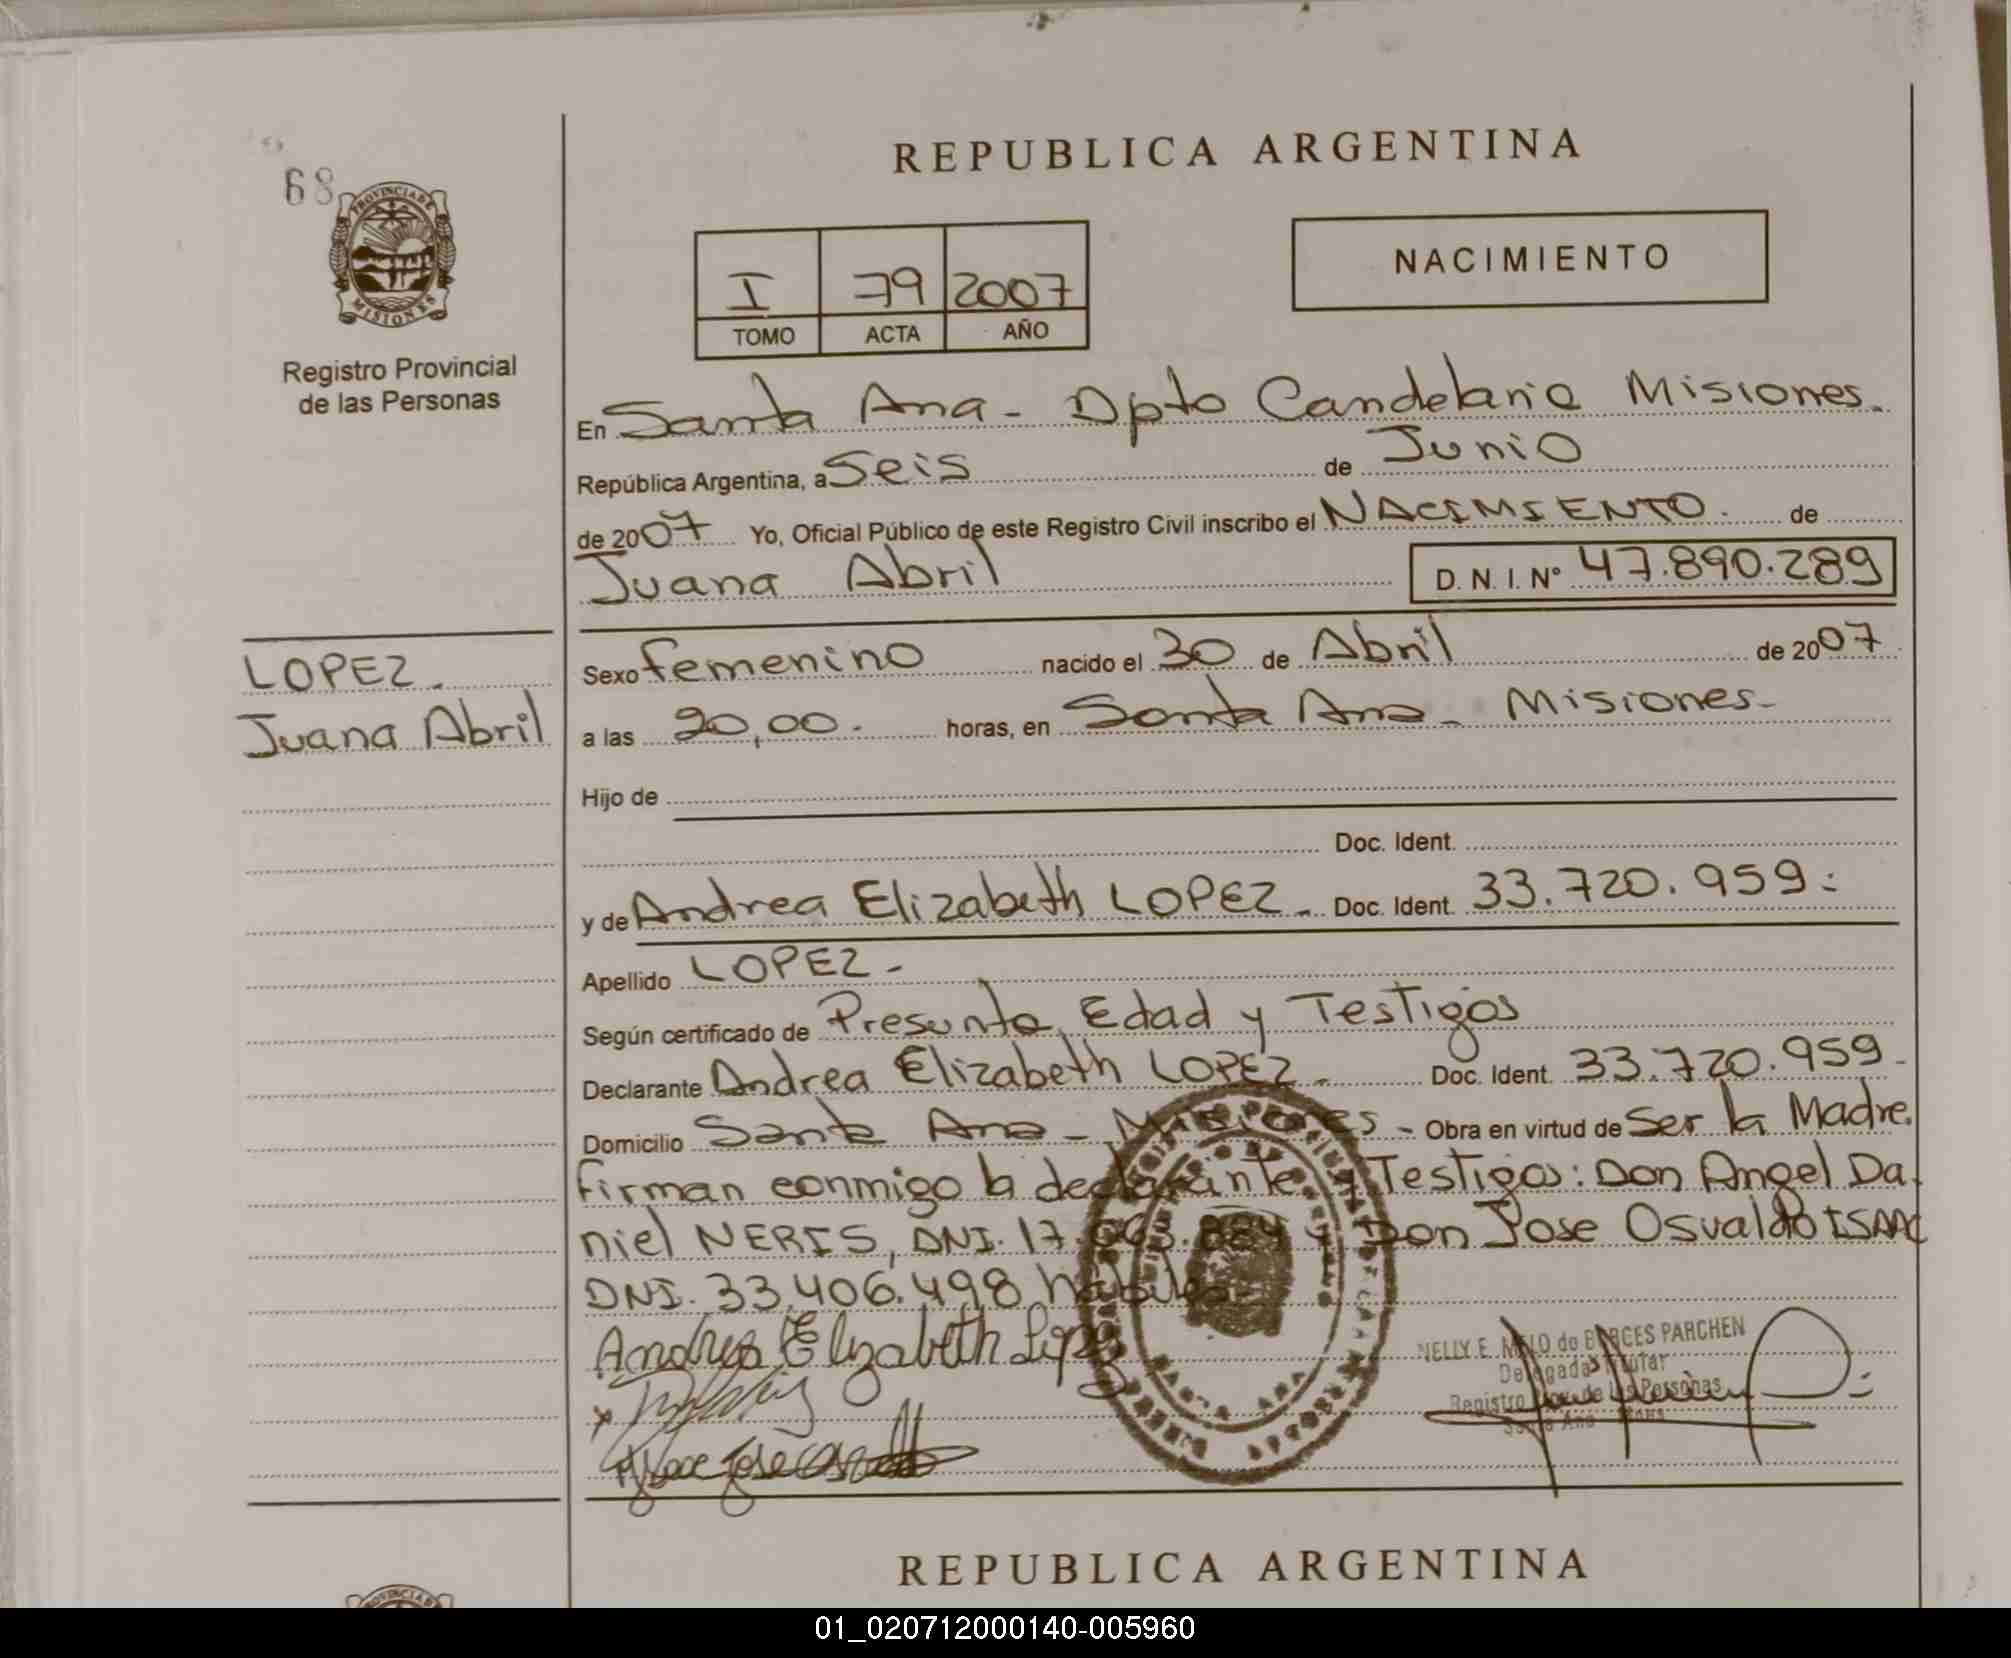 REPUBLICA ARGENTINA
68
PROVINCIA DE
MISIONES
Registro Provincial
de las Personas
I 79 2007
TOMO ACTA AÑO
NACIMIENTO
En Santa Ana - Dpto Candelaria Misiones.
República Argentina, a Seis de Junio
de 2007 Yo, Oficial Público de este Registro Civil inscribo el NACIMIENTO. de
Juana Abril D.N.I. Nº 47.890.289
LOPEZ.
Juana Abril
Sexo femenino nacido el 30 de Abril de 2007
a las 20,00. horas, en Santa Ana - Misiones -
Hijo de
Doc. Ident.
y de Andrea Elizabeth LOPEZ - Doc. Ident. 33.720.959.
Apellido LOPEZ -
Según certificado de Presunta Edad y Testigos
Declarante Andrea Elizabeth LOPEZ - Doc. Ident. 33.720.959 -
Domicilio Santa Ana - Misiones - Obra en virtud de Ser la Madre.
Firman conmigo la declarante y Testigos: Don Angel Da-
niel NERIS, DNI. 17. .884 y Don Jose Osvaldo ISAAC
DNI. 33.406.498 habiles
Andrea Elizabeth Lopez
NELLY E. MELO de BORCES PARCHEN
Delegada Titular
Registro Prov. de las Personas
Santa Ana
SANTA ANA
REPUBLICA ARGENTINA
PROVINCIA DE
01_020712000140-005960